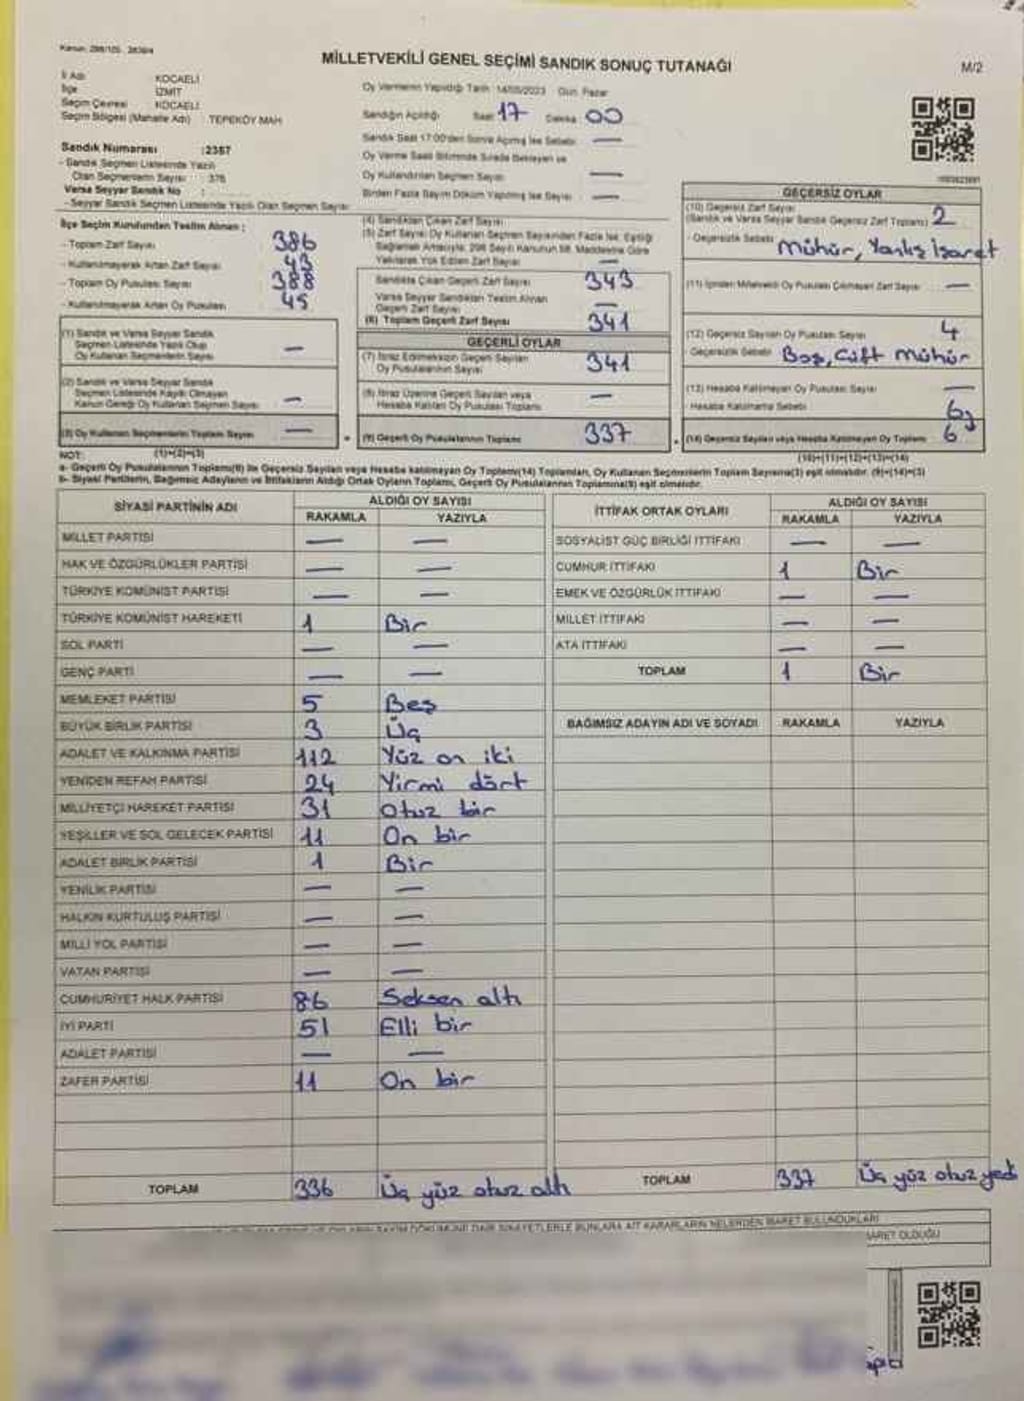 Kanun: 298/105, 2839/4
MİLLETVEKİLİ GENEL SEÇİMİ SANDIK SONUÇ TUTANAĞI
M/2
İl Adı KOCAELİ
İlçe İZMİT
Seçim Çevresi KOCAELİ
Seçim Bölgesi (Mahalle Adı) TEPEKÖY MAH
Sandık Numarası :2387
- Sandık Seçmen Listesinde Yazılı
Olan Seçmenlerin Sayısı : 376
Varsa Seyyar Sandık No :
- Seyyar Sandık Seçmen Listesinde Yazılı Olan Seçmen Sayısı
Oy Vermenin Yapıldığı Tarih :14/05/2023 Gün: Pazar
Sandığın Açıldığı Saat 17 Dakika 00
Sandık Saat 17:00'den Sonra Açılmış İse Sebebi —
Oy Verme Saati Bitiminde Sırada Bekleyen ve
Oy Kullandırılan Seçmen Sayısı —
Birden Fazla Sayım Döküm Yapılmış İse Sayısı —
İlçe Seçim Kurulundan Teslim Alınan :
- Toplam Zarf Sayısı 386
- Kullanılmayarak Artan Zarf Sayısı 43
- Toplam Oy Pusulası Sayısı 388
- Kullanılmayarak Artan Oy Pusulası 45
(1) Sandık ve Varsa Seyyar Sandık
Seçmen Listesinde Yazılı Olup
Oy Kullanan Seçmenlerin Sayısı —
(2) Sandık ve Varsa Seyyar Sandık
Seçmen Listesinde Kayıtlı Olmayan
Kanun Gereği Oy Kullanan Seçmen Sayısı —
(3) Oy Kullanan Seçmenlerin Toplam Sayısı —
(4) Sandıktan Çıkan Zarf Sayısı
(5) Zarf Sayısı Oy Kullanan Seçmen Sayısından Fazla İse, Eşitliği
Sağlamak Amacıyla, 298 Sayılı Kanunun 98. Maddesine Göre
Yakılarak Yok Edilen Zarf Sayısı —
Sandıkta Çıkan Geçerli Zarf Sayısı 343
Varsa Seyyar Sandıktan Teslim Alınan
Geçerli Zarf Sayısı —
(6) Toplam Geçerli Zarf Sayısı 341
GEÇERLİ OYLAR
(7) İtiraz Edilmeksizin Geçerli Sayılan
Oy Pusulalarının Sayısı 341
(8) İtiraz Üzerine Geçerli Sayılan veya
Hesaba Katılan Oy Pusulası Toplamı —
(9) Geçerli Oy Pusulalarının Toplamı 337
GEÇERSİZ OYLAR
(10) Geçersiz Zarf Sayısı
(Sandık ve Varsa Seyyar Sandık Geçersiz Zarf Toplamı) 2
- Geçersizlik Sebebi Mühür, Yanlış işaret
(11) İçinden Milletvekili Oy Pusulası Çıkmayan Zarf Sayısı —
(12) Geçersiz Sayılan Oy Pusulası Sayısı 4
- Geçersizlik Sebebi Boş, Çift mühür
(13) Hesaba Katılmayan Oy Pusulası Sayısı —
- Hesaba Katılmama Sebebi
(14) Geçersiz Sayılan veya Hesaba Katılmayan Oy Toplamı 6
NOT: (1)+(2)=(3) (10)+(11)+(12)+(13)=(14)
a- Geçerli Oy Pusulalarının Toplamı(9) ile Geçersiz Sayılan veya Hesaba katılmayan Oy Toplamı(14) Toplamları, Oy Kullanan Seçmenlerin Toplam Sayısına(3) eşit olmalıdır. (9)+(14)=(3)
b- Siyasi Partilerin, Bağımsız Adayların ve İttifakların Aldığı Ortak Oyların Toplamı, Geçerli Oy Pusulalarının Toplamına(9) eşit olmalıdır.
SİYASİ PARTİNİN ADI ALDIĞI OY SAYISI
RAKAMLA YAZIYLA
MİLLET PARTİSİ — —
HAK VE ÖZGÜRLÜKLER PARTİSİ — —
TÜRKİYE KOMÜNİST PARTİSİ — —
TÜRKİYE KOMÜNİST HAREKETİ 1 Bir
SOL PARTİ — —
GENÇ PARTİ — —
MEMLEKET PARTİSİ 5 Beş
BÜYÜK BİRLİK PARTİSİ 3 Üç
ADALET VE KALKINMA PARTİSİ 112 Yüz on iki
YENİDEN REFAH PARTİSİ 24 Yirmi dört
MİLLİYETÇİ HAREKET PARTİSİ 31 Otuz bir
YEŞİLLER VE SOL GELECEK PARTİSİ 11 On bir
ADALET BİRLİK PARTİSİ 1 Bir
YENİLİK PARTİSİ — —
HALKIN KURTULUŞ PARTİSİ — —
MİLLİ YOL PARTİSİ — —
VATAN PARTİSİ — —
CUMHURİYET HALK PARTİSİ 86 Seksen altı
İYİ PARTİ 51 Elli bir
ADALET PARTİSİ — —
ZAFER PARTİSİ 11 On bir
TOPLAM 336 Üç yüz otuz altı
İTTİFAK ORTAK OYLARI ALDIĞI OY SAYISI
RAKAMLA YAZIYLA
SOSYALİST GÜÇ BİRLİĞİ İTTİFAKI — —
CUMHUR İTTİFAKI 1 Bir
EMEK VE ÖZGÜRLÜK İTTİFAKI — —
MİLLET İTTİFAKI — —
ATA İTTİFAKI — —
TOPLAM 1 Bir
BAĞIMSIZ ADAYIN ADI VE SOYADI RAKAMLA YAZIYLA
TOPLAM 337 Üç yüz otuz yedi
SAYIM DÖKÜMÜNE DAİR ŞİKAYETLERLE BUNLARA AİT KARARLARIN NELERDEN İBARET BULUNDUKLARI
İBARET OLDUĞU